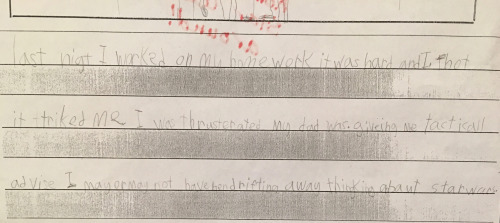 last nigt I worked on my homework it was hard and I thot
it triked me I was thrusterated my dad was giving me tacticall
advise I may or may not have bend rifting away thinking about starwars